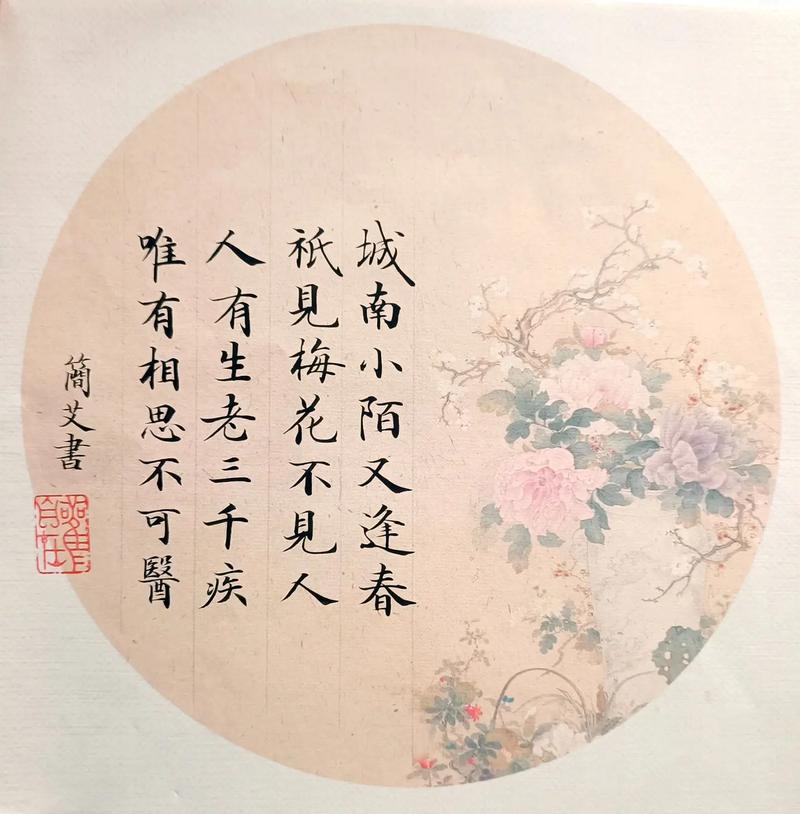 城南小陌又逢春
祇見梅花不見人
人有生老三千疾
唯有相思不可醫
簡艾書